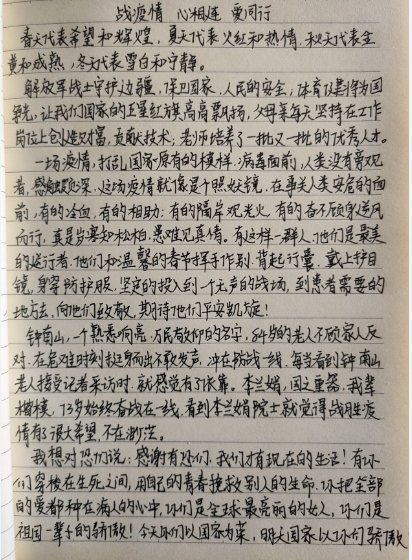 战疫情 心相连 爱同行
春天代表希望和辉煌，夏天代表火红和热情，秋天代表金
黄和成熟，冬天代表雪白和宁静。
解放军战士守护边疆，保卫国家，人民的安全，体育健将为国
争光，让我们国家的五星红旗高高飘扬，父母辈每天坚持在工作
岗位上创造财富，贡献技术；老师培养了一批又一批的优秀人才。
一场疫情，打乱国家原有的模样；病毒面前，人类没有旁观
者，感触颇深，这场疫情就像是个照妖镜，在事关人类安居的面
前，有的冷血，有的相助；有的隔岸观光火，有的奋不顾身逆风
而行，真是岁寒知松柏，患难见真情。有这样一群人，他们是最美
的逆行者，他们和温馨的春节挥手作别，背起行囊，戴上护目
镜，身穿防护服，坚定的投入到一个无声的战场，到患者需要的
地方去，向他们致敬，期待他们平安凯旋！
钟南山，一个熟悉响亮，万民敬仰的名字，84岁的老人不顾家人反
对，在危难时刻挺身而出不敢发声，冲在防战一线，每当看到钟南山
老人接受记者采访时，就感觉有了依靠。李兰娟，国之重器，我辈
楷模，73岁始终奋战在一线，看到李兰娟院士就觉得战胜疫
情有了很大希望，不在渺茫。
我想对您们说：感谢有您们，我们才有现在的生活！有你
们穿梭在生死之间，用自己的青春挽救别人的生命，你把全部
的爱都种在病人的心中，你们是全球最亮丽的女人，你们是
祖国一辈子的骄傲！今天你们以国家为荣，明天国家以你们骄傲